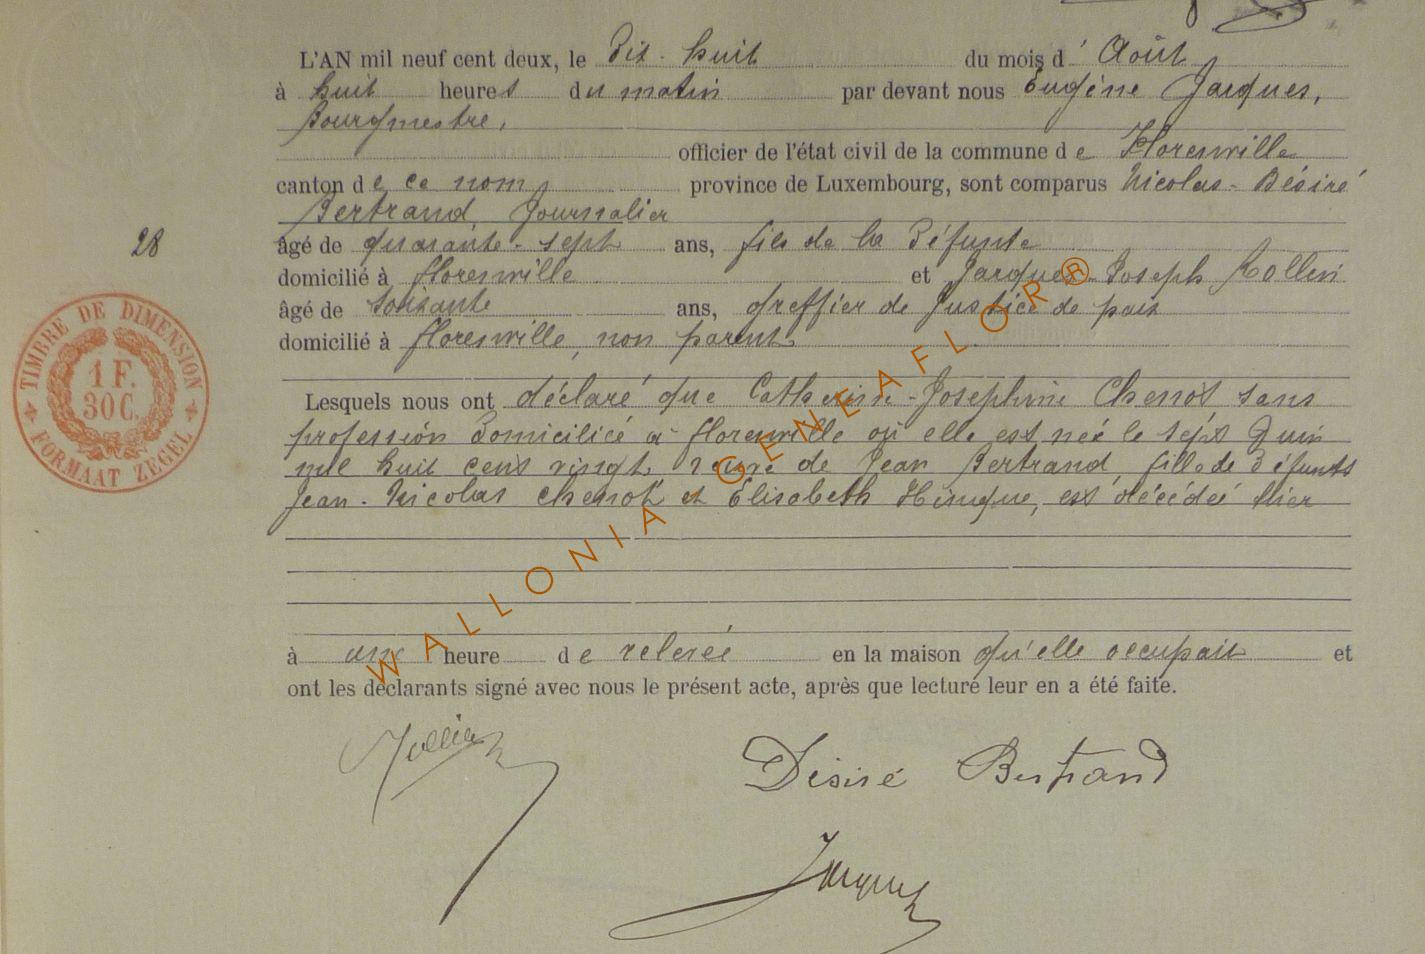 L'AN mil neuf cent deux, le Dix-huit du mois d' Août
à huit heures du matin par devant nous Eugène Jacques,
Bourgmestre,
officier de l'état civil de la commune de Florenville
canton de ce nom province de Luxembourg, sont comparus Nicolas-Désiré
Bertrand Journalier
28
âgé de quarante-sept ans, fils de la Défunte
domicilié à florenville et Jacques-Joseph Rollin
âgé de soixante ans, greffier de Justice de paix
domicilié à florenville, non parent.
Lesquels nous ont déclaré que Catherine-Joséphine Chenot sans
profession domiciliée à florenville où elle est née le sept Juin
mil huit cent vingt, veuve de Jean Bertrand, fille de défunts
Jean-Nicolas Chenot et Elisabeth, est décédée hier
à une heure de relevée en la maison qu'elle occupait et
ont les déclarants signé avec nous le présent acte, après que lecture leur en a été faite.
TIMBRE DE DIMENSION
1 F.
30 C.
FORMAAT ZEGEL
Rollin
Désiré Bertrand
Jacques
WALLONIA GENEAFLOR®